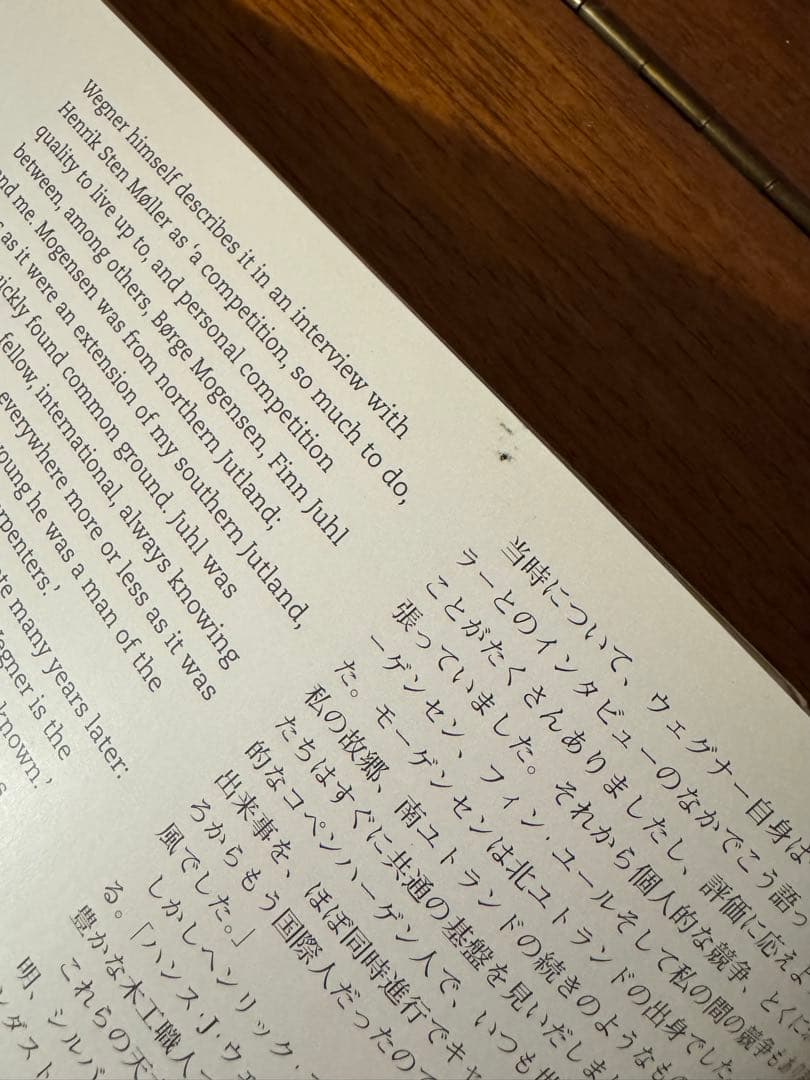 Wegner himself describes it in an interview with
Henrik Sten Møller as ‘a competition, so much to do,
quality to live up to, and personal competition
between, among others, Børge Mogensen, Finn Juhl
me. Mogensen was from northern Jutland;
as it were an extension of my southern Jutland,
found common ground. Juhl was
fellow, international, always knowing
everywhere more or less as it was
he was a man of the
many years later:
is the
known.’
当時について、ウェグナー自身は
ラーとのインタビューのなかでこう語っ
ことがたくさんありましたし、評価に応えよ
張っていました。それから個人的な競争、とくに
ーゲンセン、フィン・ユールそして私の間の競争も
た。モーゲンセンは北ユトランドの出身でした
私の故郷、南ユトランドの続きのようなもの
たちはすぐに共通の基盤を見いだしまし
的なコペンハーゲン人で、いつも世
出来事を、ほぼ同時進行でキャ
ろからもう国際人だったので
風でした。」
しかしヘンリック・
る。「ハンス・J・ウェ
豊かな木工職人
これらの天
明、シルバ
ンダスト